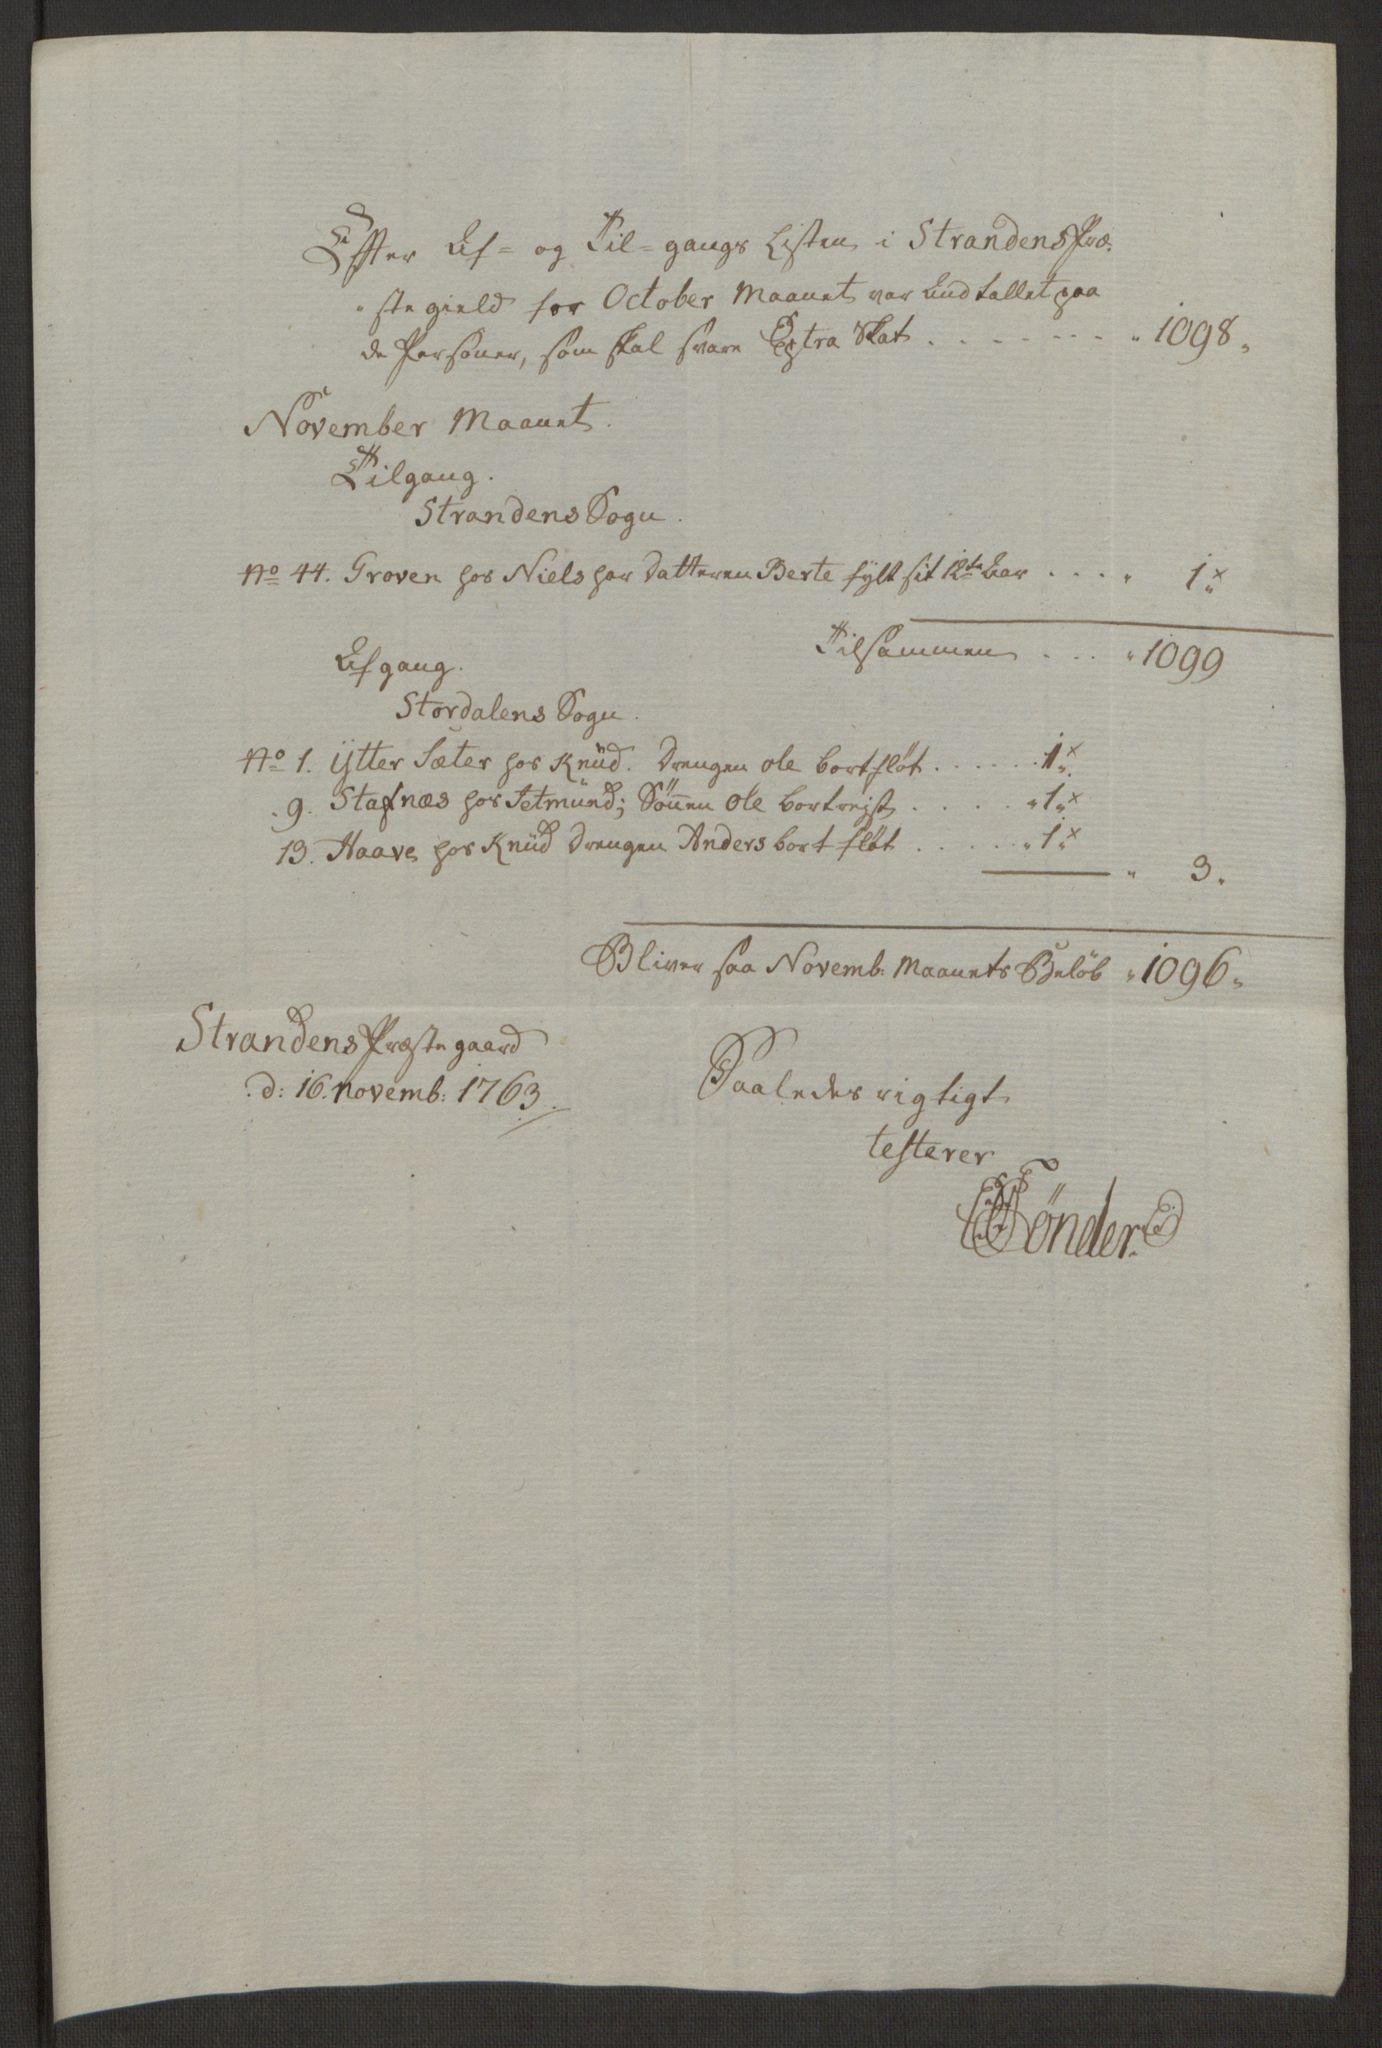 Efter Af= og Til=gangs Listen i Strandens Præ=
stegield for October Maanet var Endtallet paa
de Personer, som skal svare Extra Skat . . . . . . . 1098.
November Maanet.
Tilgang.
Strandens Sogn.
No 44. Groven hos Niels har Datteren Berte fylt sit 12te Aar . . . . 1.
Tilsammen . . . 1099
Afgang.
Stordalens Sogn.
No 1. Ytter Sæter hos Knüd. Drengen Ole bortfløt . . . . . . 1.
9. Stafnæs hos Jetmünd; Sönnen Ole bortrejst . . . . . 1.
13. Haave hos Knüd Drengen Anders bortfløt . . . . . 1.
3.
Bliver saa Novemb: Maanets Beløb 1096.
Strandens Præstegaard
d: 16. novemb: 1763.
Saaledes rigtigt
testerer
Tönder.